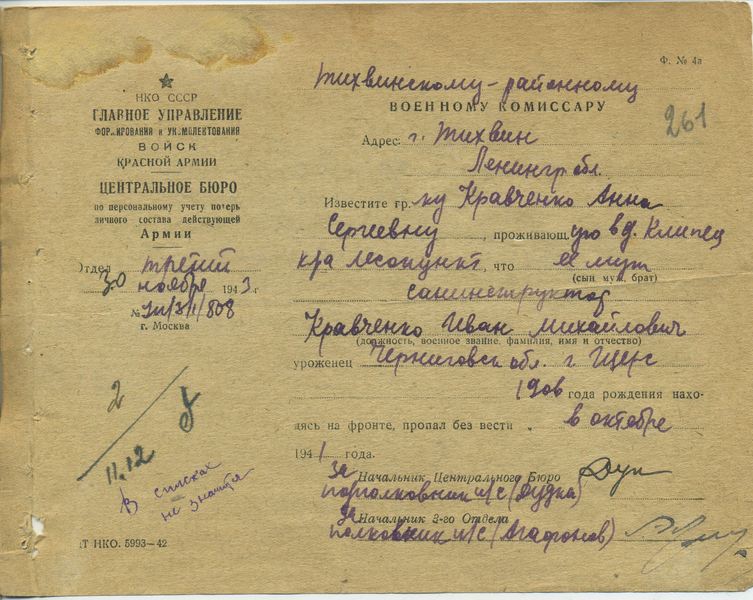 Ф. № 4а
НКО СССР
ГЛАВНОЕ УПРАВЛЕНИЕ
ФОРМИРОВАНИЯ и УКОМПЛЕКТОВАНИЯ
ВОЙСК
КРАСНОЙ АРМИИ
ЦЕНТРАЛЬНОЕ БЮРО
по персональному учету потерь
личного состава действующей
Армии
Отдел третий
30 ноября 1943 г
№ 808
г. Москва
2
11.12
В списках
не значится
Т НКО. 5993—42
Тихвинскому-районному
ВОЕННОМУ КОМИССАРУ
261
Адрес: г. Тихвин
Ленингр обл.
Известите гр. ку Кравченко Анна
Сергеевну, проживающ ую в д. Клипец
кра лесопункт, что ее муж
(сын, муж, брат)
санинструктор
Кравченко Иван Михайлович
(должность, военное звание, фамилия, имя и отчество)
уроженец Черниговск обл. г Щорс
1906 года рождения нахо-
дясь на фронте, пропал без вести в октябре
1941 года.
За Начальник Центрального Бюро
подполковник и/с (Дудка)
За Начальник 3-го Отдела
полковник и/с (Агафонов)